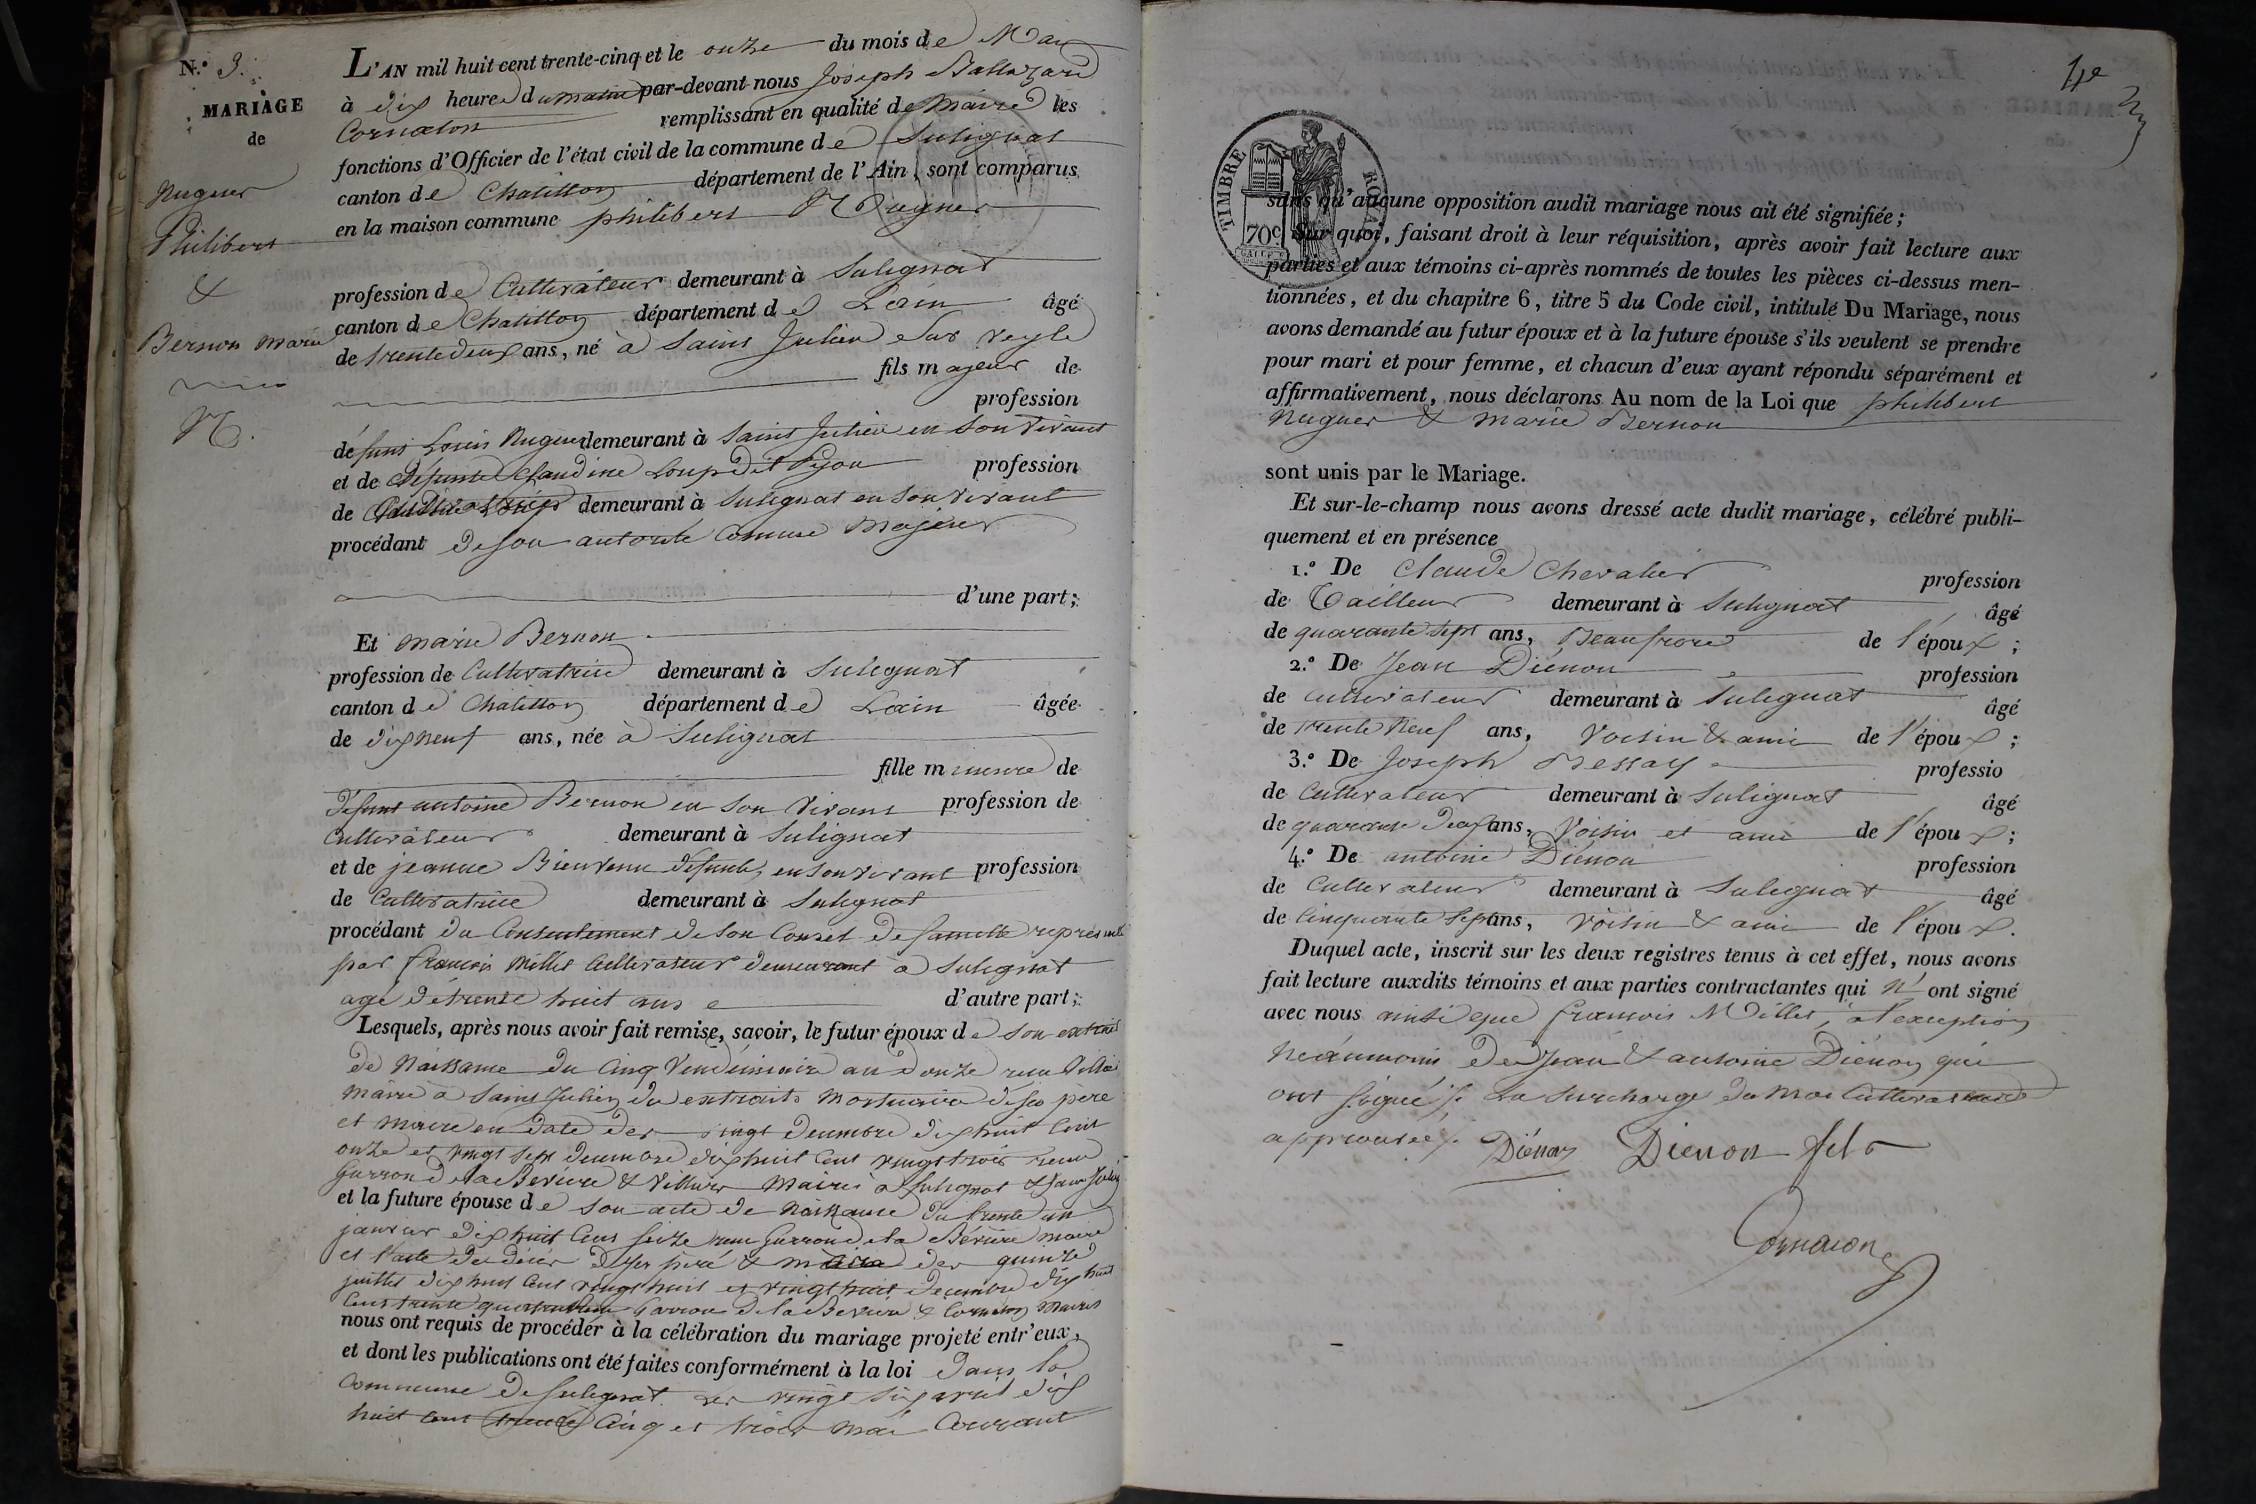 N.° 3.
MARIAGE
de
Nuguer
Philibert
&
Bernon marie
L'AN mil huit cent trente-cinq et le onze du mois de Mai
à dix heure du matin par-devant nous Joseph Baltazard
Cornaton remplissant en qualité de Maire les
fonctions d'Officier de l'état civil de la commune de Sulignat
canton de Chatillon département de l'Ain, sont comparus
en la maison commune philibert Nuguer
profession de Cultivateur demeurant à Sulignat
canton de Chatillon département de Lain âgé
de trente deux ans, né à Saint Julien sur veyle
fils majeur de
profession
défunt Louis Nuguer demeurant à Saint Julien en Son vivant
et de défunte Claudine Loup dit Dijou profession
de demeurant à Sulignat en Son vivant
procédant de son autorité comme Majeur
d'une part;
Et marie Bernon
profession de Cultivatrice demeurant à Sulignat
canton de Chatillon département de Lain âgée
de dix neuf ans, née à Sulignat
fille mineure de
défunt antoine Bernon en Son vivant profession de
Cultivateur demeurant à Sulignat
et de jeanne Bienvenu défunte, en son vivant profession
de Cultivatrice demeurant à Sulignat
procédant du Consentement de son Conseil de famille représenté
par francois Millet Cultivateur demeurant à Sulignat
agé de trente huit ans d'autre part;
Lesquels, après nous avoir fait remise, savoir, le futur époux de son extrait
de Naissance du Cinq Vendémiaire an douze reçu
Maire à Saint Julien du extraits Mortuaire de ses père
et mère en date des vingt decembre dix huit Cent
onze et vingt sept decembre dix huit Cent vingt trois reçu
Garron de la Bevière & Maires à Sulignat & Saint Julien
et la future épouse de son acte de Naissance du trente un
janvier dix huit Cent seize reçu Garron de la Bévière maire
et l'acte de décès de ses père & mère des quinze
juillet dix huit Cent vingt huit et vingt huit Decembre dix huit
Cent trente Garron de la Bevière & Cornaton Maires
nous ont requis de procéder à la célébration du mariage projeté entr'eux,
et dont les publications ont été faites conformément à la loi dans la
Commune de Sulignat les vingt six avril dix
huit cent trente Cinq et trois mai Courant
4e
TIMBRE ROYAL
70c
sans qu'aucune opposition audit mariage nous ait été signifiée;
Sur quoi, faisant droit à leur réquisition, après avoir fait lecture aux
parties et aux témoins ci-après nommés de toutes les pièces ci-dessus men-
tionnées, et du chapitre 6, titre 5 du Code civil, intitulé Du Mariage, nous
avons demandé au futur époux et à la future épouse s'ils veulent se prendre
pour mari et pour femme, et chacun d'eux ayant répondu séparément et
affirmativement, nous déclarons Au nom de la Loi que philibert
Nuguer & marie Bernon
sont unis par le Mariage.
Et sur-le-champ nous avons dressé acte dudit mariage, célébré publi-
quement et en présence
1.° De Claude Chevalier profession
de Tailleur demeurant à Sulignat âgé
de quarante sept ans, Beaufrere de l'époux;
2.° De Jean Diénon profession
de cultivateur demeurant à Sulignat âgé
de trente Neuf ans, Voisin & ami de l'époux;
3.° De Joseph Bessay professio
de Cultivateur demeurant à Sulignat âgé
de quarante deux ans, Voisin et ami de l'époux;
4.° De antoine Diénon profession
de Cultivateur demeurant à Sulignat âgé
de Cinquante sept ans, voisin & ami de l'époux.
Duquel acte, inscrit sur les deux registres tenus à cet effet, nous avons
fait lecture auxdits témoins et aux parties contractantes qui n'ont signé
avec nous ainsi que francois Millet, à l'exception
Néanmoins de Jean & antoine Diénon qui
ont signé ./. La Surcharge du Mot Cultivatrice
approuvée ./. Diénon Dienon fils
Cornaton